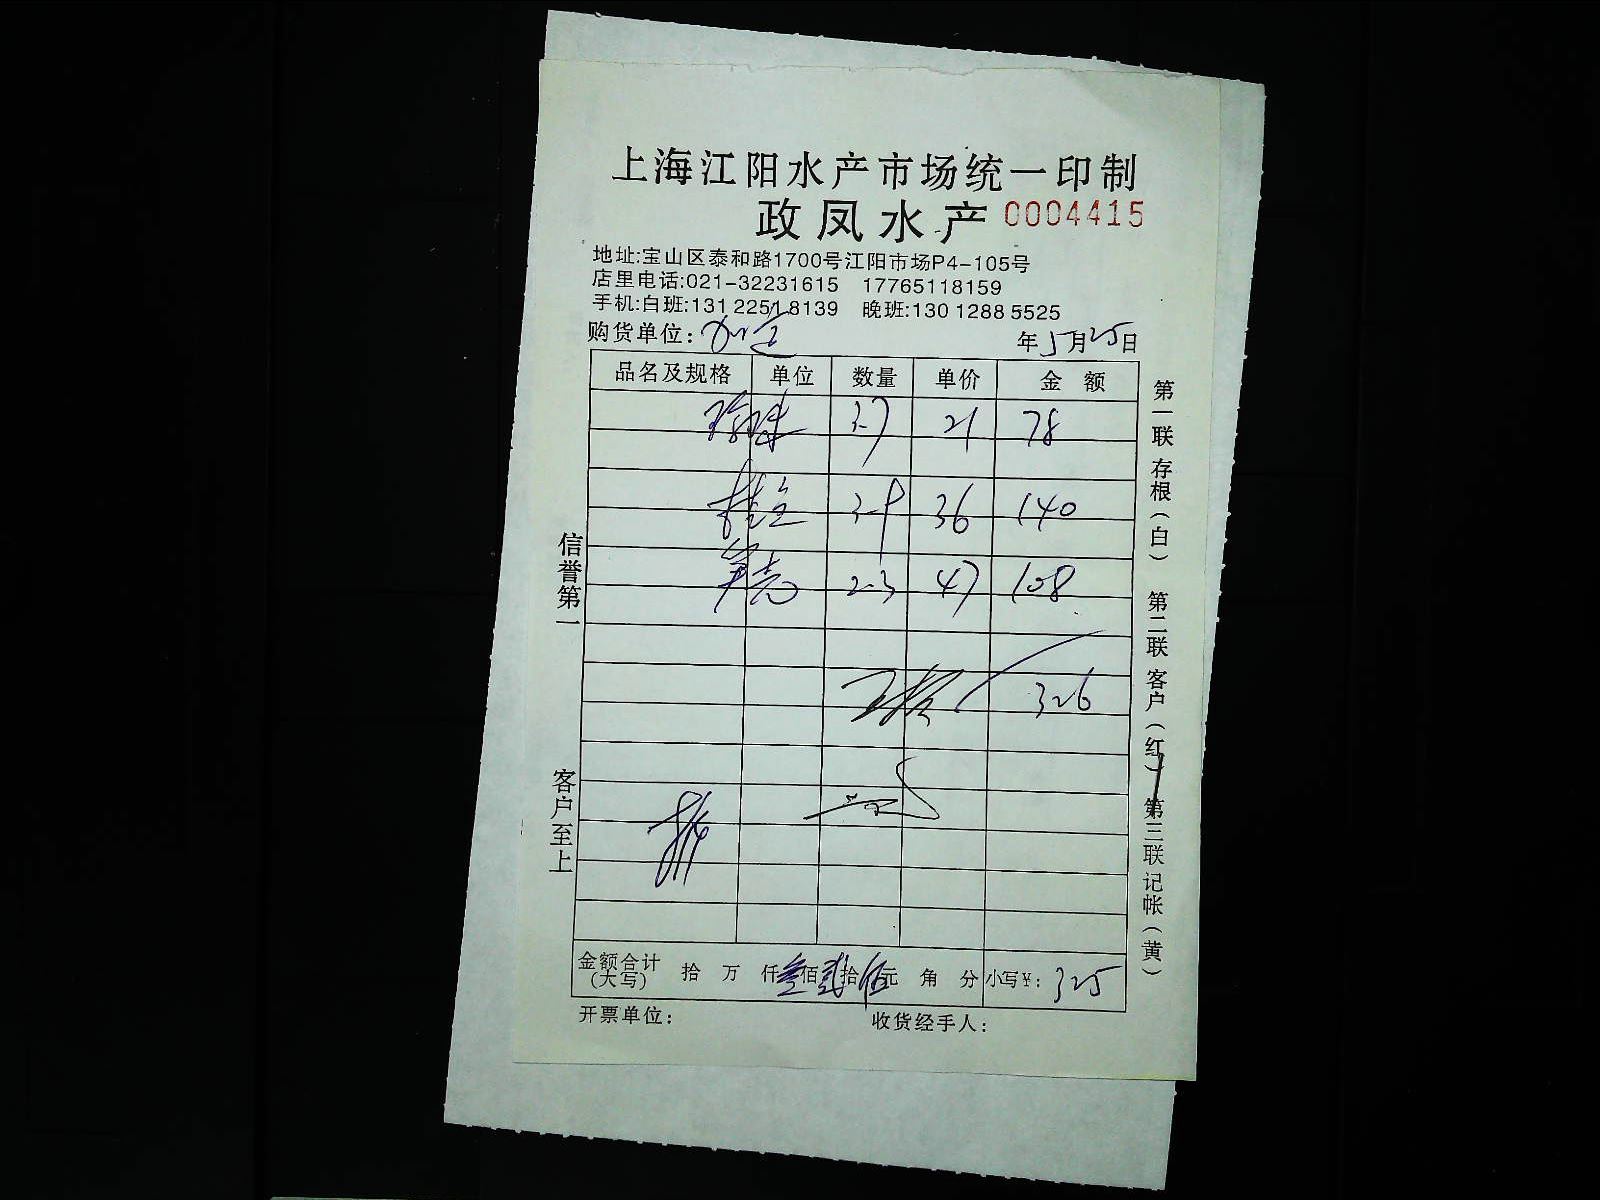 上海江阳水产市场统一印制
政凤水产 0004415
地址:宝山区泰和路1700号江阳市场P4-105号
店里电话:021-32231615 17765118159
手机:白班:131 2251 8139 晚班:130 1288 5525
购货单位: 年5月25日
品名及规格 单位 数量 单价 金 额
3.7 21 78
3.9 36 140
2.3 47 108
326
金额合计(大写) 拾 万 仟叁佰贰拾伍元 角 分 小写¥: 325
开票单位: 收货经手人:
信誉第一
客户至上
第一联 存根(白) 第二联 客户(红) 第三联 记帐(黄)